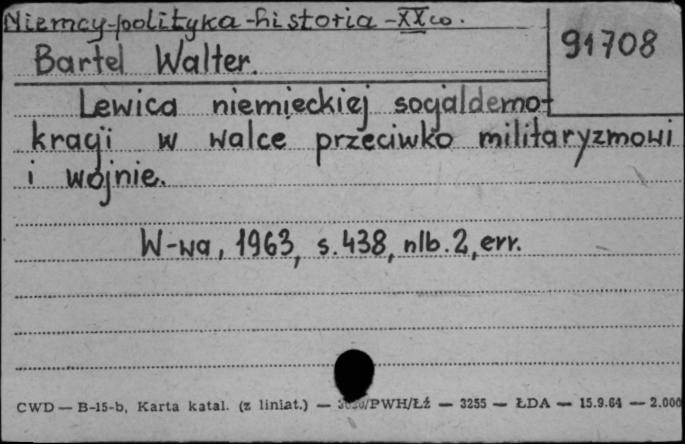 Niemcy-polityka-historia-XX w.
91708
Bartel Walter.
Lewica niemieckiej socjaldemo-
kracji w walce przeciwko militaryzmowi
i wojnie.
W-wa, 1963, s. 438, nlb. 2, err.
CWD — B-15-b, Karta katal. (z liniat.) — /PWH/Łź — 3255 — ŁDA — 15.9.64 — 2.000